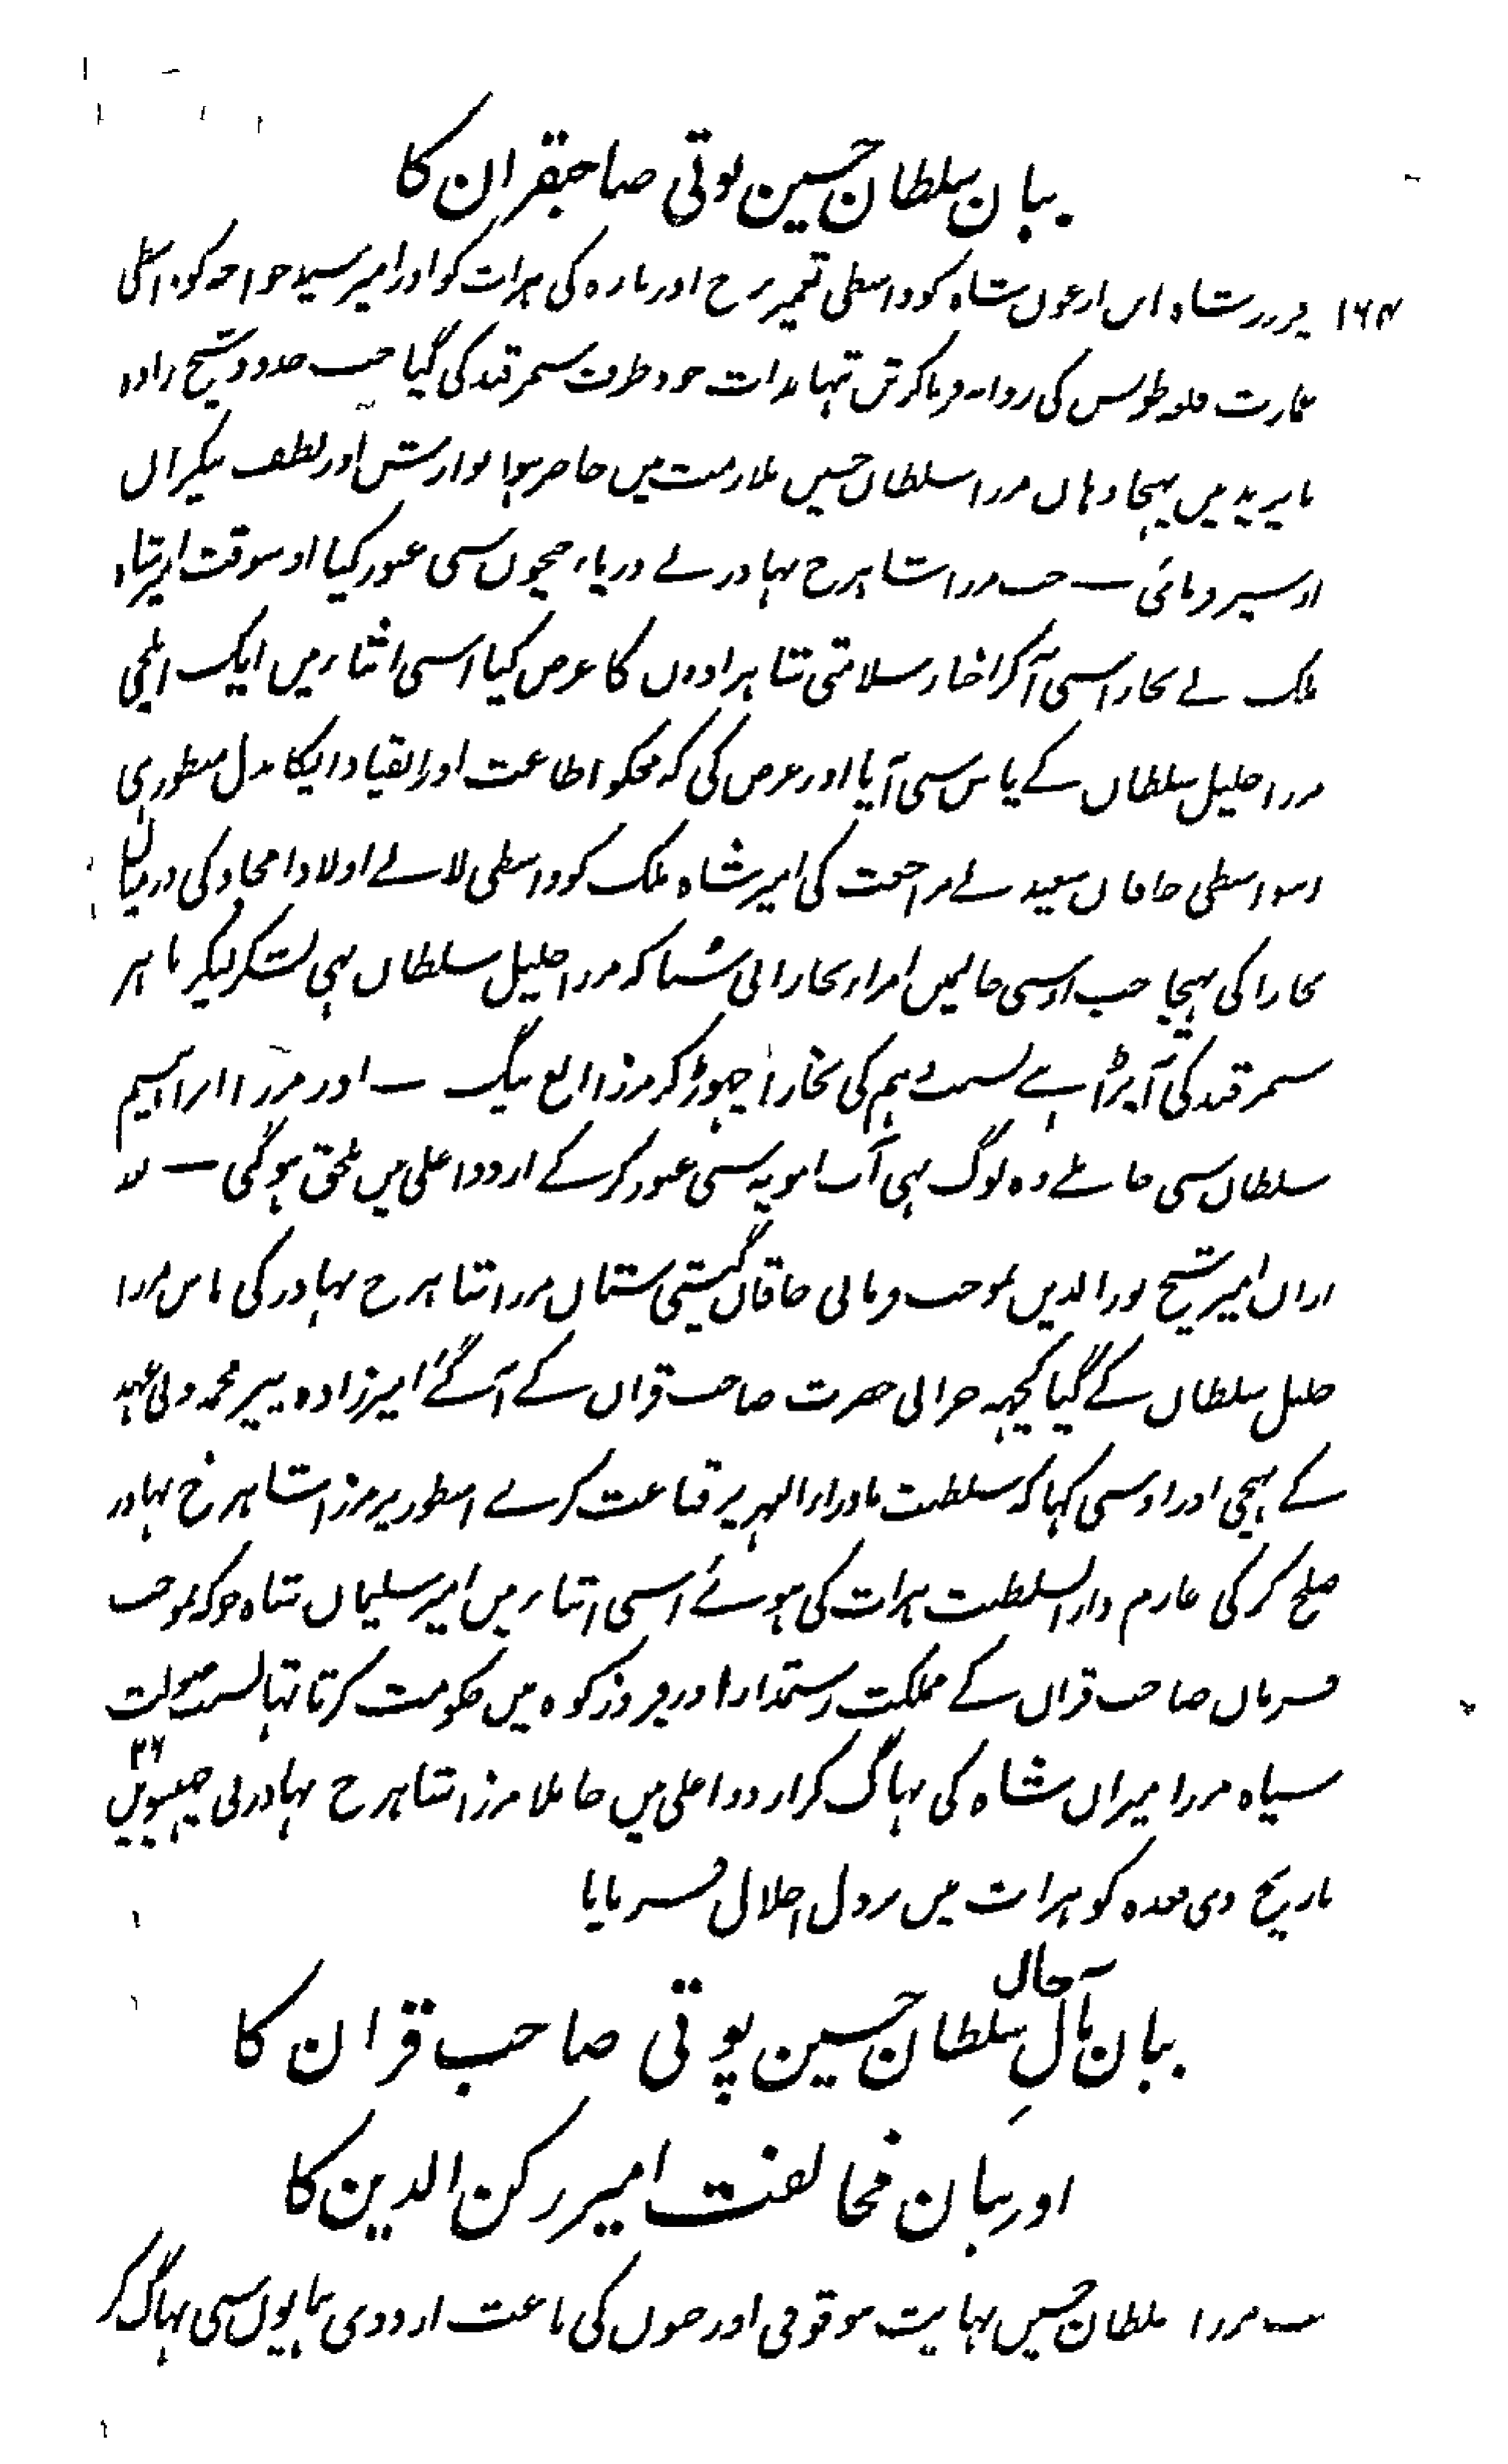 بیان سلطان حسین پوتی صاحبقران کا
۱۶۴ فیروز شاہ ابن ارغون شاہ کو واسطی تعمیر برج اور بارہ کی ہرات کو اور امیر سید خواجہ کو واسطی
عمارت قلعہ طوس کی روانہ فرما کر تن تنہا بذات خود طرف سمرقند کی گیا جب حدود شیخ زادہ
بایزید میں پہنچا وہاں مرزا سلطان حسین ملازمت میں حاضر ہوا نوازش اور لطف بیکران
اوسپر فرمائی ۔ جب مرزا شاہرخ بہادر نے دریاء جیحون سی عبور کیا اوسوقت امیر شاہ
ملک نے بخارا سی آ کر اخبار سلامتی شاہزادوں کا عرض کیا اسی اثناء میں ایک ایلچی
مرزا خلیل سلطان کے پاس سی آیا اور عرض کی کہ مجکو اطاعت اور انقیاد آپکا بدل منظور ہی
اسواسطی خاقان سعید نے مراجعت کی امیر شاہ ملک کو واسطی لانے اولاد امجاد کی درمیان
بخارا کی بہیجا جب اوسی حالمیں امراء بخارا نی سنا کہ مرزا خلیل سلطان بہی لشکر لیکر باہر
سمرقند کی آ پڑا ہے بسبب وہم کی بخارا چہوڑ کر مرزا الغ بیگ ۔ اور مرزا ابراہیم
سلطان سی جا ملے وہ لوگ بہی آب امویہ سی عبور کر کے اردو اعلی میں ملحق ہو گی ۔ بعد
ازان امیر شیخ نورالدین بموجب فرمانی خاقان گیتی ستان مرزا شاہرخ بہادر کی پاس مرزا
خلیل سلطان کے گیا کچہہ خزانی حضرت صاحب قران کے آگے امیرزادہ پیر محمد ولی عہد
کے بہیجی اور اوسی کہا کہ سلطنت ماوراء النہر پر قناعت کرے اسطور پر مرزا شاہرخ بہادر
صلح کر کی عازم دار السلطنت ہرات کی ہوئے اسی اثناء میں امیر سلیمان شاہ جو کہ بموجب
فرمان صاحب قران کے مملکت رستمدار اور فیروز کوہ میں حکومت کرتا تہا بسبب صولت
سپاہ مرزا میران شاہ کی بہاگ کر اردو اعلی میں جا ملا مرزا شاہرخ بہادر نی چہبیویں ۲۶
تاریخ ذی قعدہ کو ہرات میں نزول اجلال فرمایا
بیان مآل حال سلطان حسین پوتی صاحب قران کا
اور بیان مخالفت امیر رکن الدین کا
جب مرزا سلطان حسین نہایت بیوقوفی اور جنون کی باعث اردوی ہمایوں سی بہاگ کر